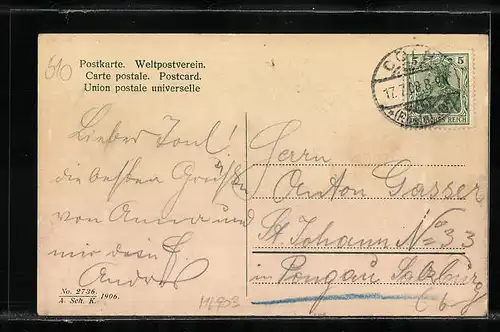 510
Postkarte. Weltpostverein.
Carte postale. Postcard.
Union postale universelle
5 5
CÖLN
17.7.08.
REICH
Lieber Toni!
die besten Grüße
von Anna und
mir dein
Andre
Herrn
Anton Gasser
St. Johann No 33
in Pongau Salzburg
No. 2736.
A. Sch. K. 1906.